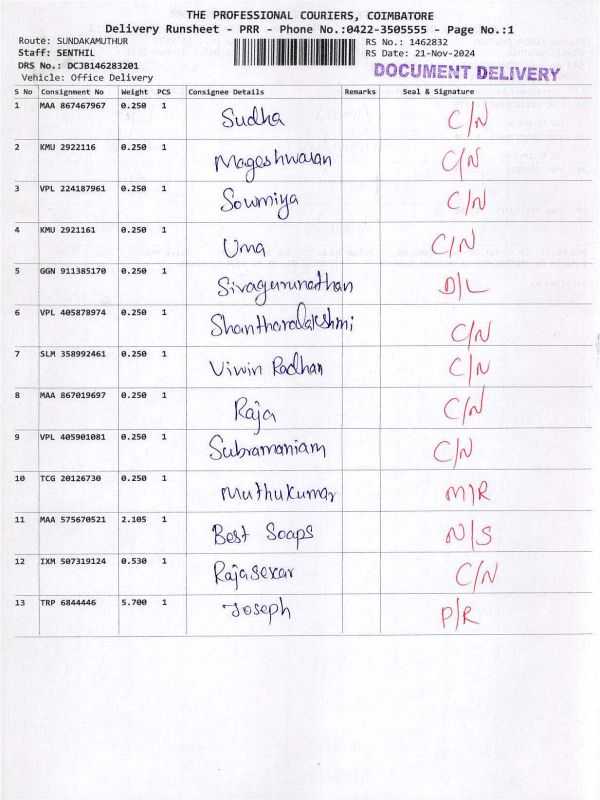 THE PROFESSIONAL COURIERS, COIMBATORE
Delivery Runsheet - PRR - Phone No.:0422-3505555 - Page No.:1
Route: SUNDAKAMUTHUR RS No.: 1462832
Staff: SENTHIL RS Date: 21-Nov-2024
DRS No.: DCJB146283201 DOCUMENT DELIVERY
Vehicle: Office Delivery
S No Consignment No Weight PCS Consignee Details Remarks Seal & Signature
1 MAA 867467967 0.250 1 Sudha C/N
2 KMU 2922116 0.250 1 Mageshwaran C/N
3 VPL 224187961 0.250 1 Sowmiya C/N
4 KMU 2921161 0.250 1 Uma C/N
5 GGN 911385170 0.250 1 Sivagurunathan D/L
6 VPL 405878974 0.250 1 Shantharalakshmi C/N
7 SLM 358992461 0.250 1 Viwin Radhan C/N
8 MAA 867019697 0.250 1 Raja C/N
9 VPL 405901081 0.250 1 Subramaniam C/N
10 TCG 20126730 0.250 1 Muthukumar M/R
11 MAA 575670521 2.105 1 Best Soaps N/S
12 IXM 507319124 0.530 1 Rajasekar C/N
13 TRP 6844446 5.700 1 Joseph P/R